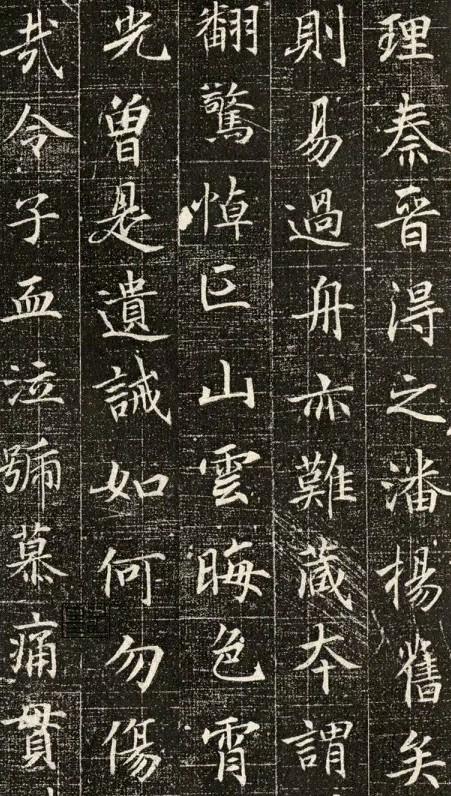 理秦晉淂之潘楊舊矣
則易過舟亦難蔵本謂
翻驚悼亡山雲晦色霄
光曽是遺誡如何勿傷
㢤令子血泣號慕痛貫